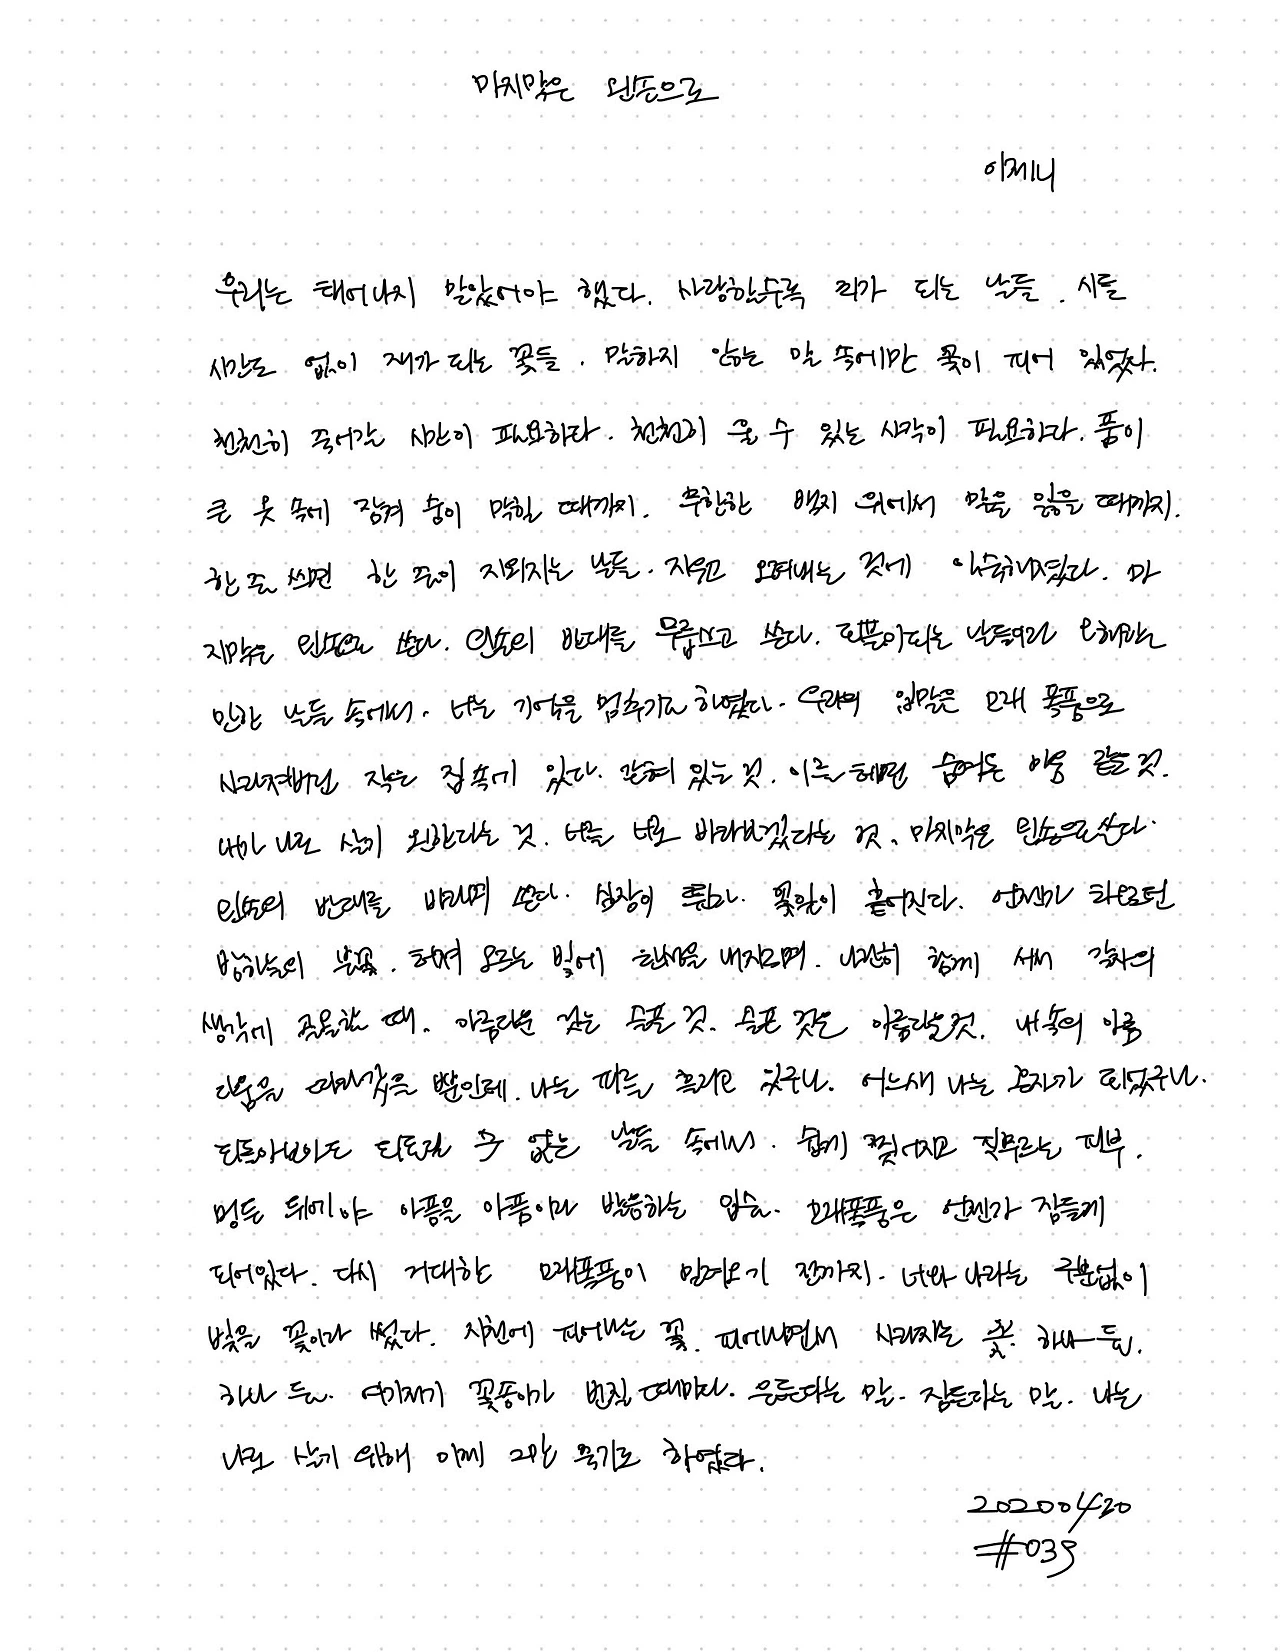 마지막은 왼손으로
이제니
우리는 태어나지 말았어야 했다. 사랑할수록 죄가 되는 날들. 시들
시간도 없이 재가 되는 꽃들. 말하지 않는 말 속에만 꽃이 피어 있었다.
천천히 죽어갈 시간이 필요하다. 천천히 울 수 있는 사각이 필요하다. 품이
큰 옷 속에 잠겨 숨이 막힐 때까지. 무한한 백지 위에서 말을 잃을 때까지.
한 줄 쓰면 한 줄이 지워지는 날들. 지우고 오려내는 것에 익숙해졌다. 마
지막은 왼손으로 쓴다. 왼손의 반대를 무릅쓰고 쓴다. 되풀이되는 날들이라 오해할
만한 날들 속에서. 너는 기억을 멈추기로 하였다. 우리의 입말은 모래 폭풍으로
사라져버린 작은 집 속에 있다. 갇혀 있는 것. 이를테면 숨겨둔 마음 같은 것.
내가 나로 살기 원한다는 것. 너를 너로 바라보겠다는 것. 마지막은 왼손으로 쓴다.
왼손의 반대를 바라며 쓴다. 심장이 뛴다. 꽃잎이 흩어진다. 언젠가 타오르던
밤하늘의 불꽃. 터져 오르는 빛에 탄성을 내지르며. 나란히 함께 서서 각자의
생각에 골몰할 때. 아름다운 것은 슬픈 것. 슬픈 것은 아름다운 것. 내 속의 아름
다움을 따라갔을 뿐인데. 나는 피를 흘리고 있구나. 어느새 나는 혼자가 되었구나.
되돌아보아도 되돌릴 수 없는 날들 속에서. 쉽게 찢어지고 짓무르는 피부.
멍든 뒤에야 아픔을 아픔이라 발음하는 입술. 모래폭풍은 언젠가 잠들게
되어있다. 다시 거대한 모래폭풍이 밀려오기 전까지. 너와 나라는 구분없이
빛을 꽃이라 썼다. 지천에 피어나는 꽃. 피어나면서 사라지는 꽃. 하나 둘.
하나 둘. 여기저기 꽃송이가 번질 때마다. 물든다는 말. 잠든다는 말. 나는
나로 살기 위해 이제 그만 죽기로 하였다.
20200420
#039